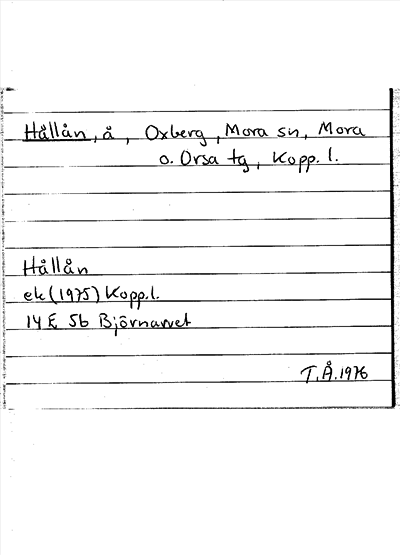 Hållån, å, Oxberg, Mora sn, Mora
o. Orsa tg, Kopp. l.
Hållån
ek (1975) Kopp. l.
14 E 5b Björnarvet
T.Å. 1976